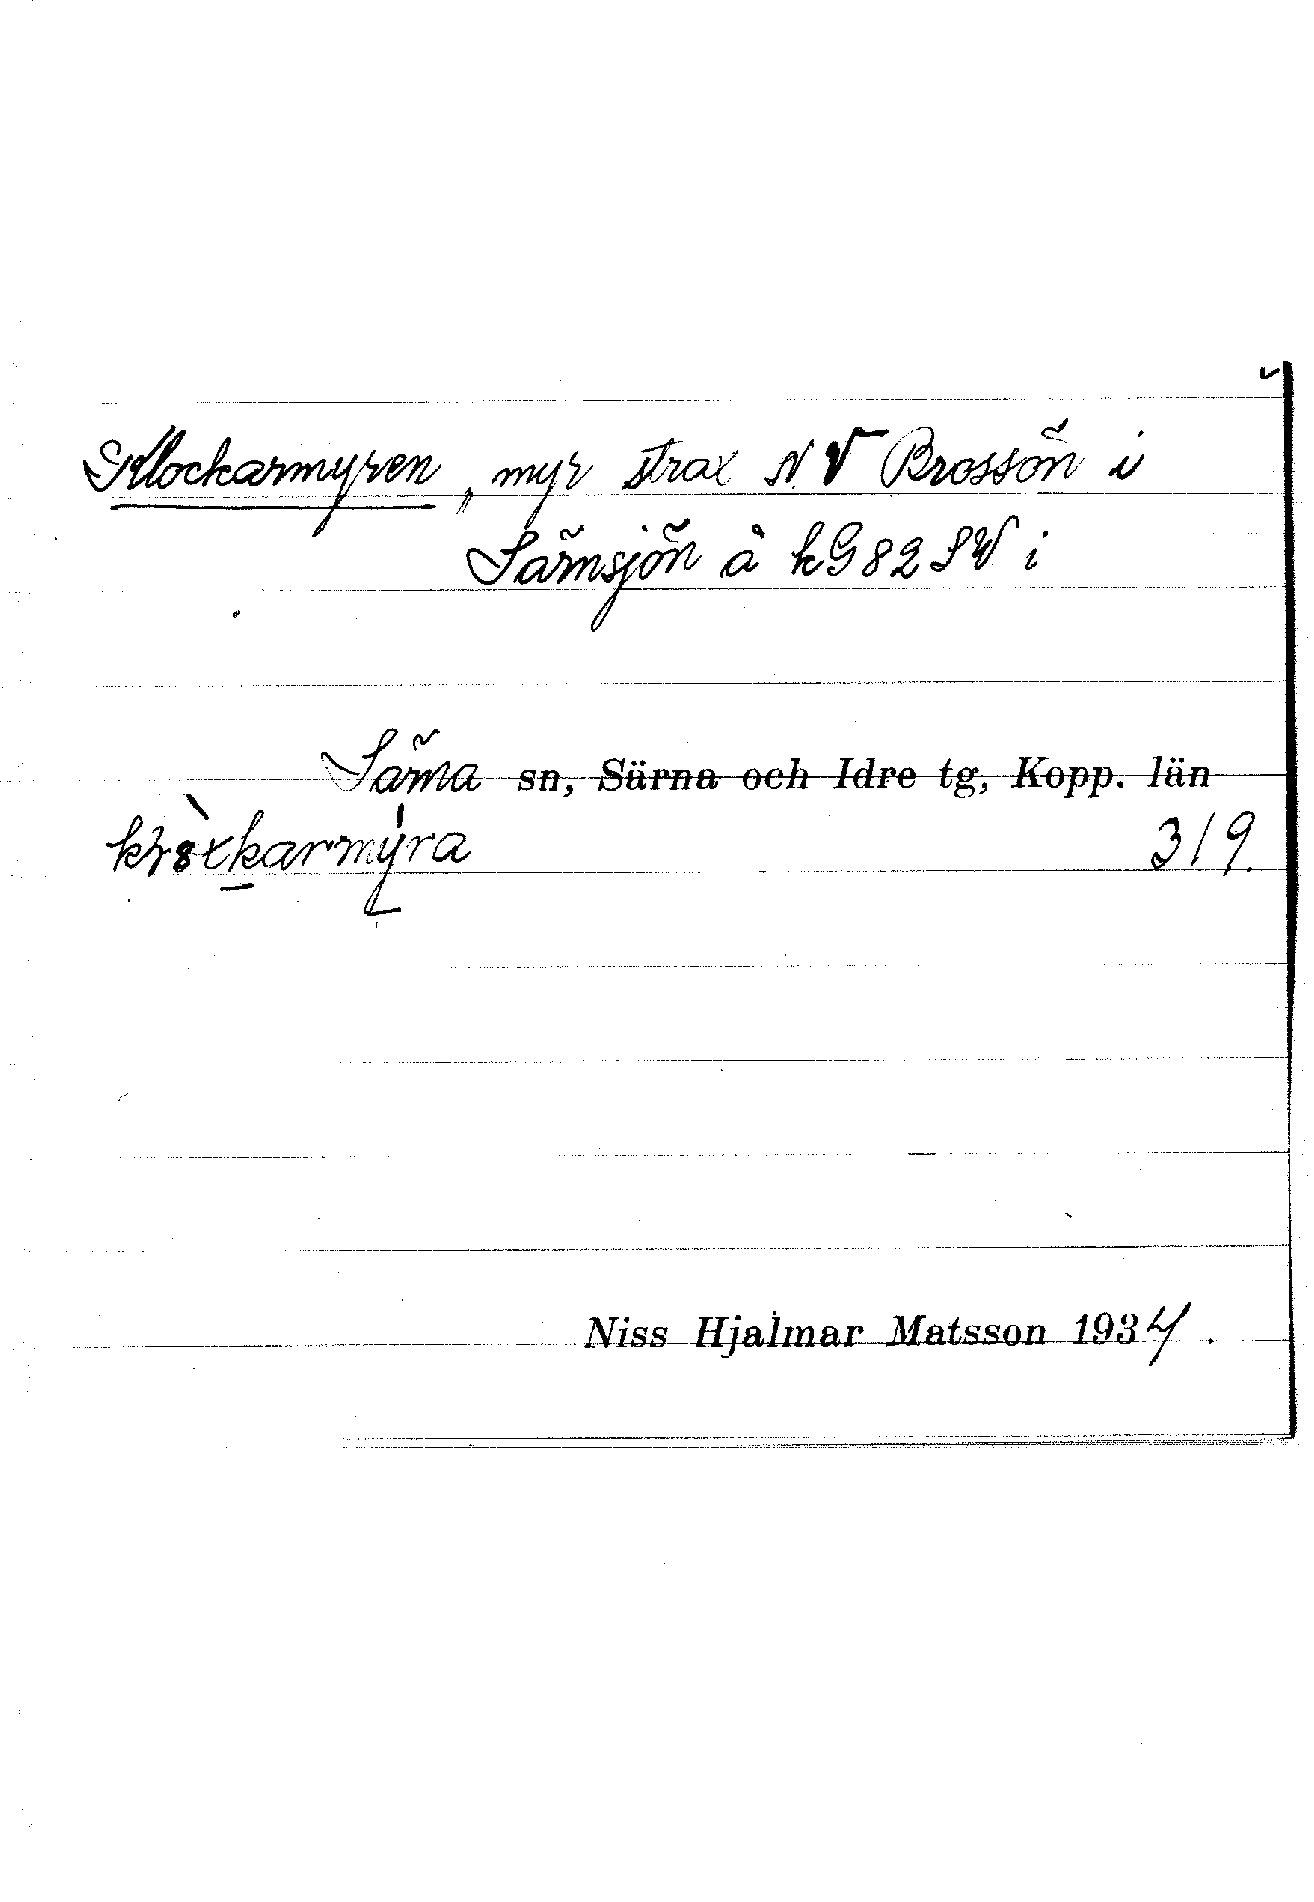 Klockarmyren, myr strax N.V Brossön i
Särnsjön å kG82SW i
Särna sn, Särna och Idre tg, Kopp. län
319.
Niss Hjalmar Matsson 1934.